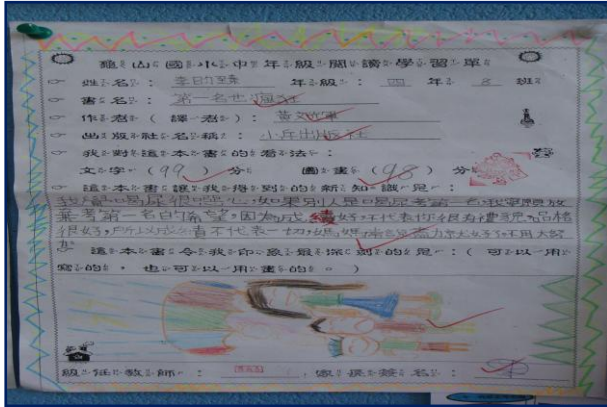 龜山國小中年級閱讀學習單
姓名： 年級： 四 年 8 班
書名： 第一名也瘋狂
作者（譯者）： 黃文軍
出版社名稱： 小兵出版社
我對這本書的看法：
文字（99）分 圖畫（98）分
這本書讓我得到的新知識是：
我覺 喝尿很噁心,如果別人是喝尿考第一名我寧願放
棄考第一名的 望,因為成績好不代表你很有禮貌,品格
很好,所以成績不代表一切,媽媽 盡力就好了不用太
這本書令我印象最深刻的是：（可以用
寫的，也可以用畫的。）
級任教師： 家長簽名：